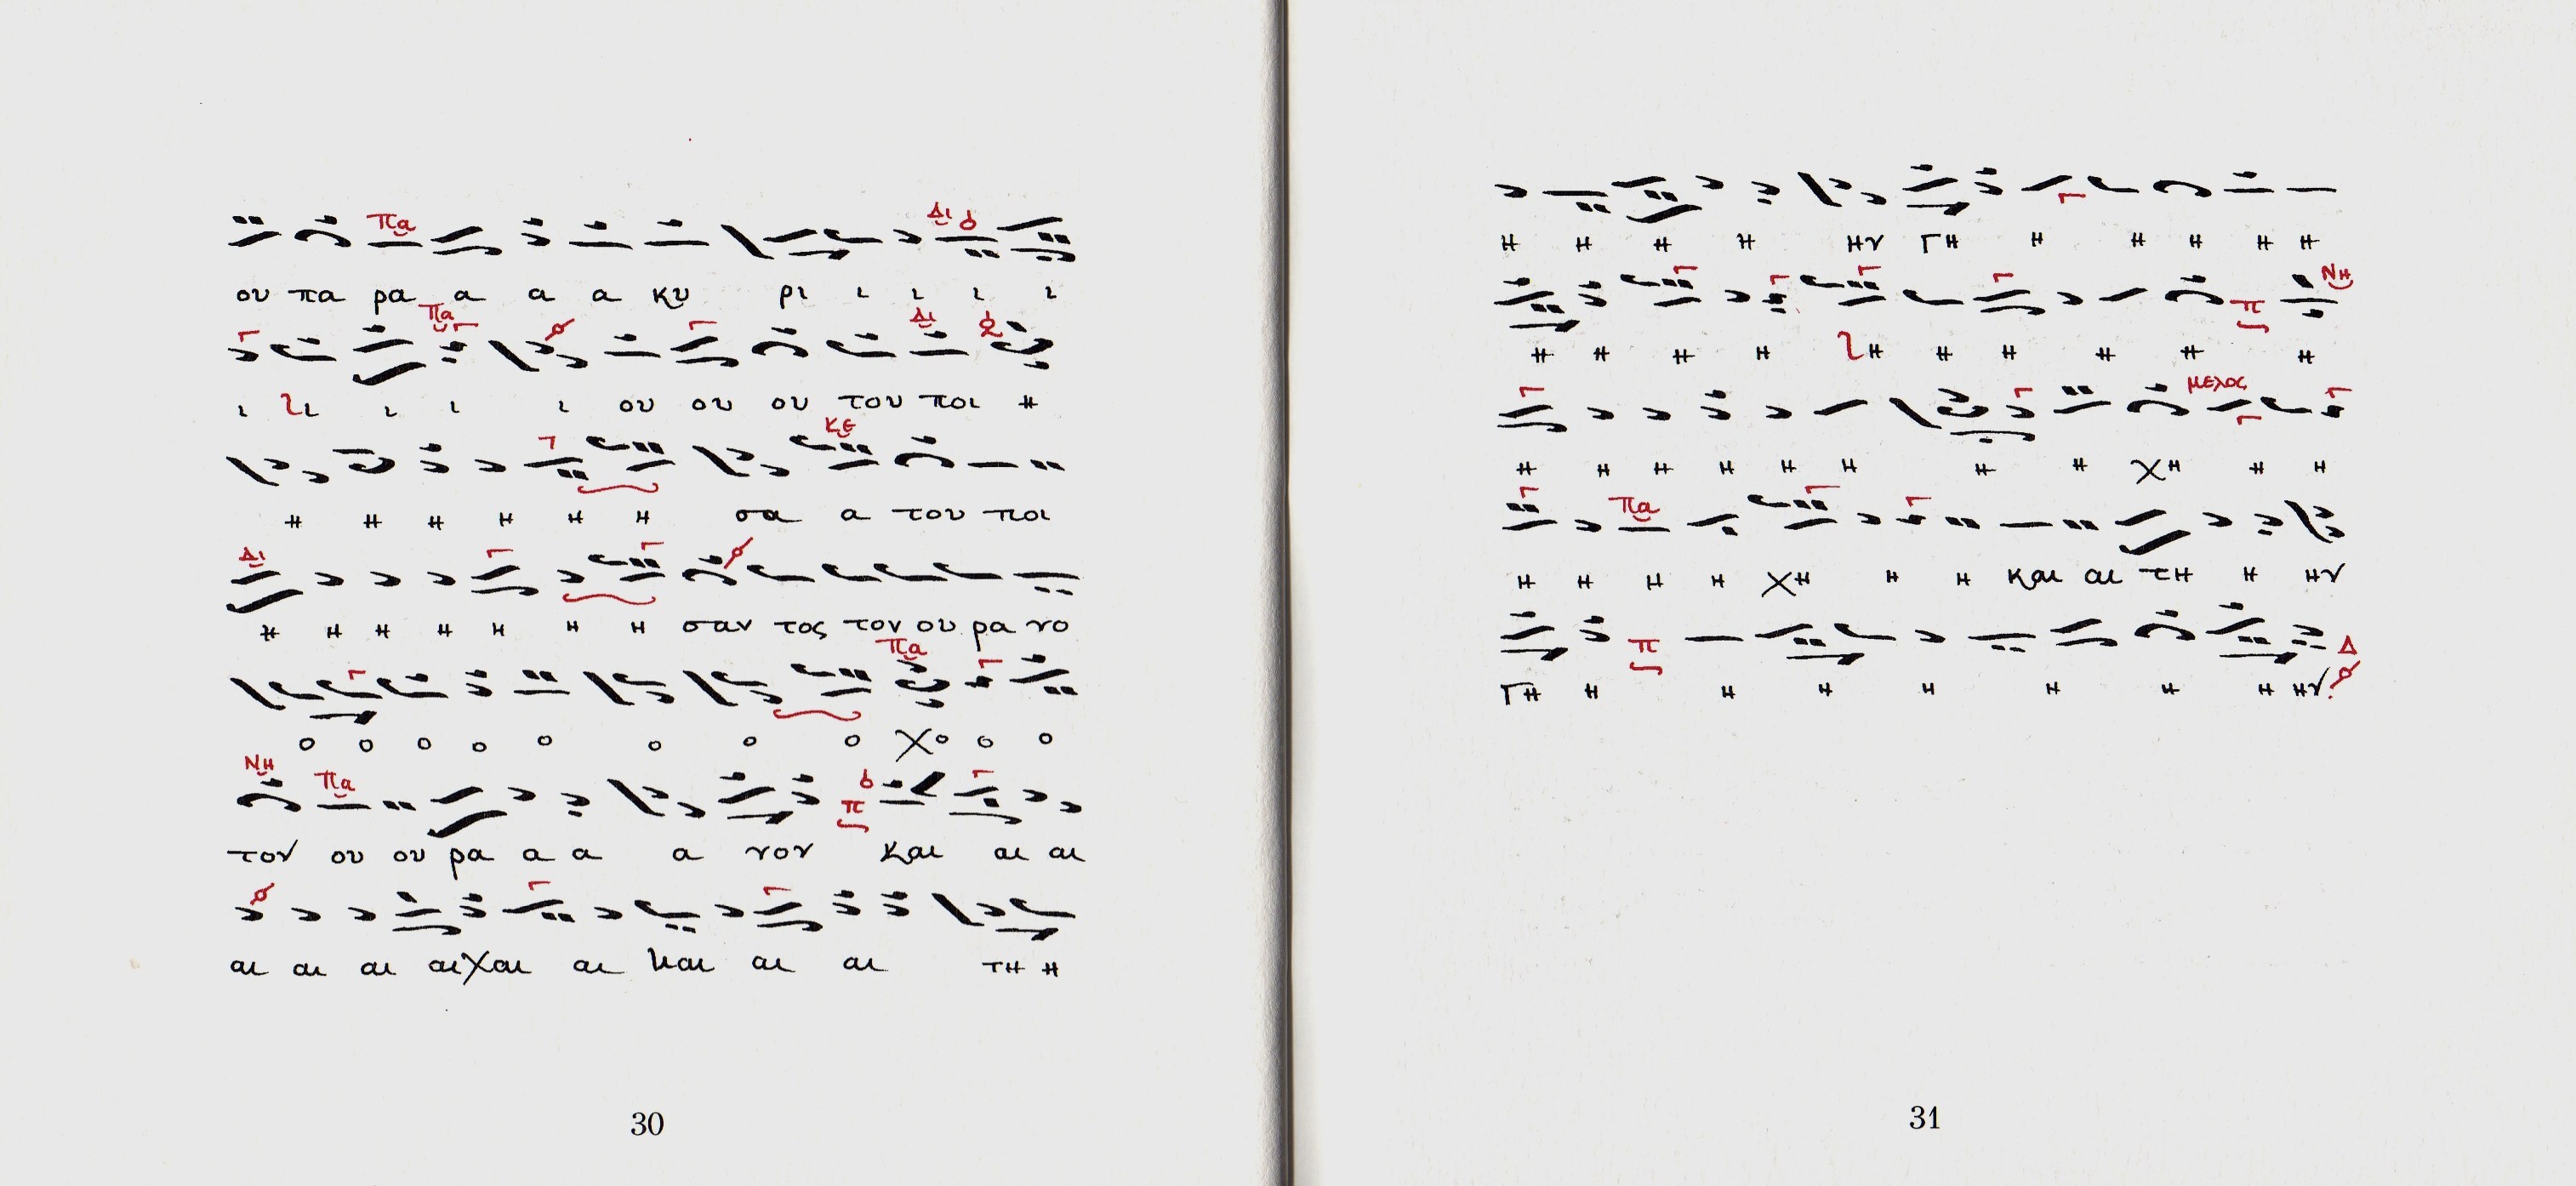 Πα Δι
ου πα ρα α α α κυ ρι ι ι ι ι
Πα Δι
ι ι ι ι ι ου ου ου του ποι η
Κε
η η η η η η σα α του ποι
Δι
η η η η η η η σαν τος τον ου ρα νο
Πα
ο ο ο ο ο ο ο ο χο ο ο
Νη Πα π
τον ου ου ρα α α α νον και αι αι
αι αι αι αι χαι αι και αι αι τη η
30
η η η η ην γη η η η η η
π Νη
η η η η η η η η η η
μελος
η η η η η η η η χη η η
Πα
η η η η χη η η και αι τη η ην
π Δ
γη η η η η η η η ην.
31